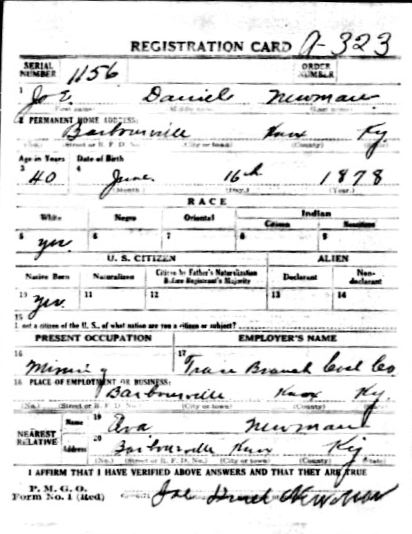 REGISTRATION CARD A-323
SERIAL NUMBER 1156 ORDER NUMBER
1 Joe Daniel Newman
(First name) (Middle name) (Last name)
2 PERMANENT HOME ADDRESS:
Barbourville Knox Ky
(No.) (Street or R. F. D. No.) (City or town) (County) (State)
Age in Years Date of Birth
3 40 4 June 16th 1878
(Month.) (Day.) (Year.)
RACE
White Negro Oriental Indian
Citizen Noncitizen
5 yes 6 7 8 9
U. S. CITIZEN ALIEN
Native Born Naturalized Citizen by Father's Naturalization Before Registrant's Majority Declarant Non-declarant
10 Yes. 11 12 13 14
15
If not a citizen of the U. S., of what nation are you a citizen or subject?
PRESENT OCCUPATION EMPLOYER'S NAME
16 Mining 17 Trace Branch Coal Co
18 PLACE OF EMPLOYMENT OR BUSINESS:
Barbourville Knox Ky.
(No.) (Street or R. F. D. No.) (City or town) (County) (State)
NEAREST RELATIVE
Name 19 Ava Newman
Address 20 Barbourville Knox Ky
(No.) (Street or R. F. D. No.) (City or town) (County) (State)
I AFFIRM THAT I HAVE VERIFIED ABOVE ANSWERS AND THAT THEY ARE TRUE
P. M. G. O.
Form No. 1 (Red) Newman